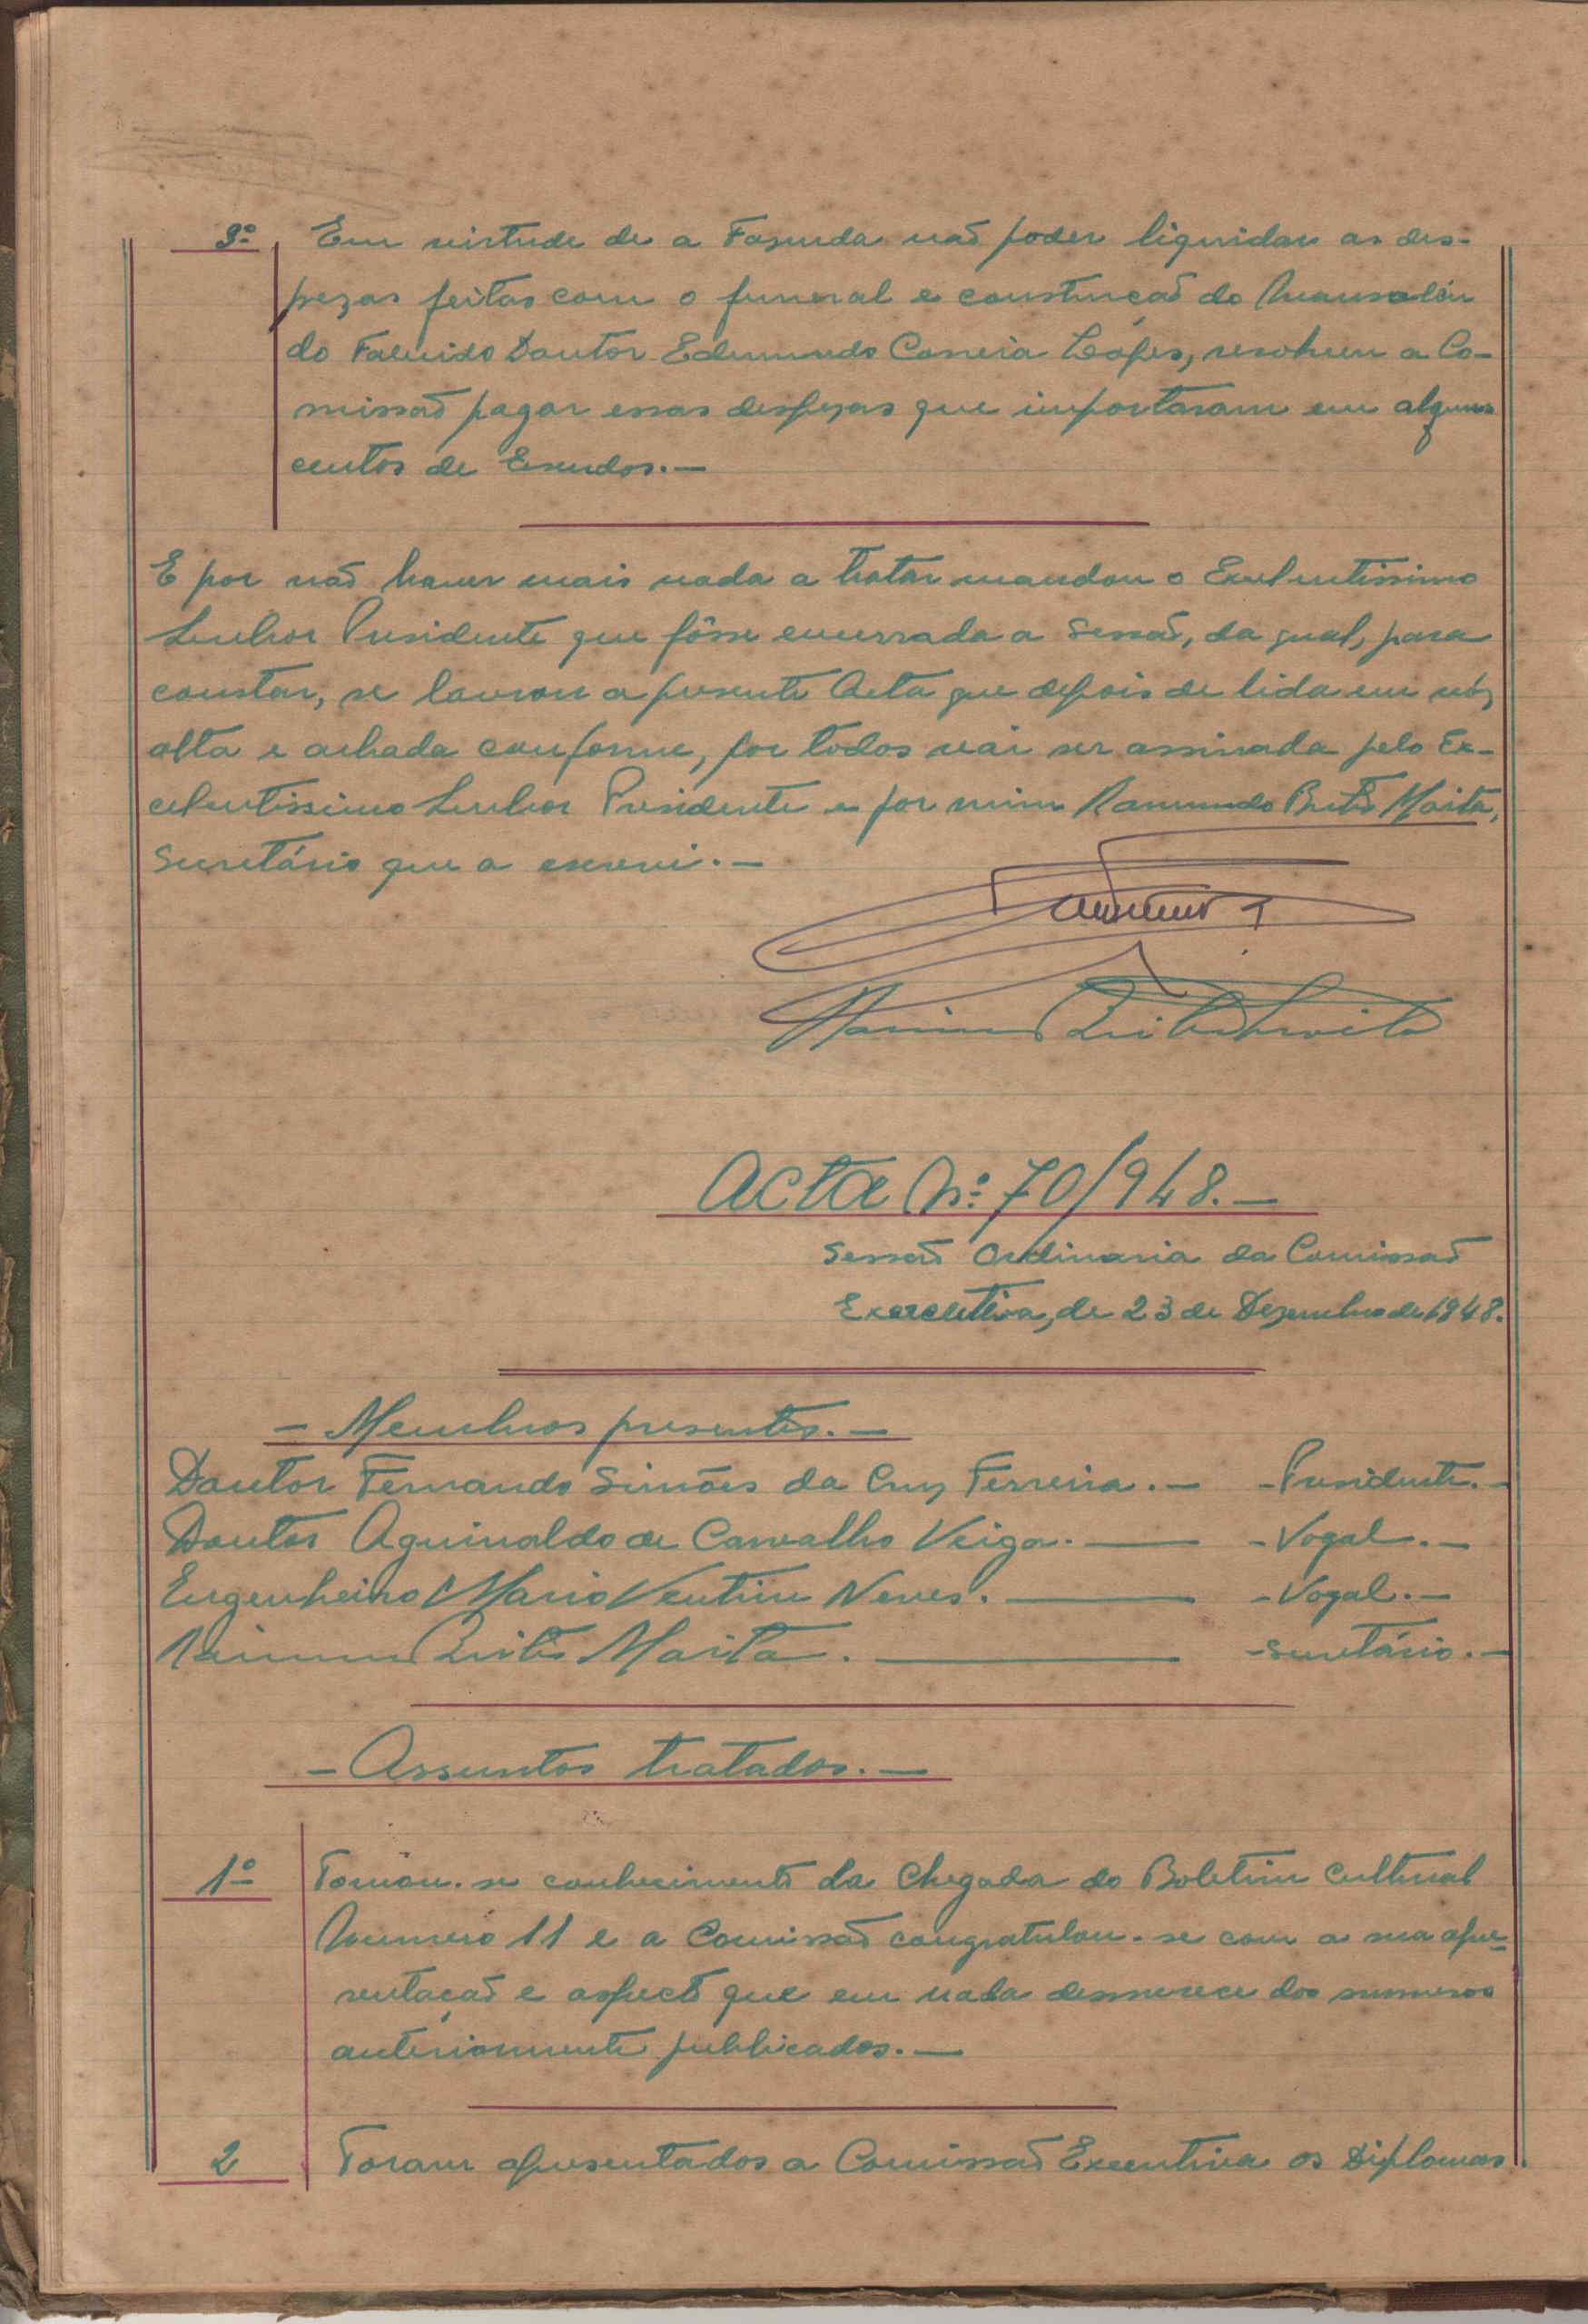 3º Em virtude de a Fazenda não poder liquidar as des-
pezas feitas com o funeral e construção do Mausoléu
do Falecido Doutor Edmundo Correia Lopes, resolveu a Co-
missão pagar essas despezas que importaram em alguns
centos de Escudos.—
E por não haver mais nada a tratar mandou o Excelentissimo
Senhor Presidente que fôsse encerrada a Sessão, da qual, para
constar, se lavrou a presente Acta que depois de lida em vóz
alta e achada conforme, por todos vai ser assinada pelo Ex-
celentissimo Senhor Presidente e por mim Raimundo Brito Moita,
Secretário que a escrevi.—
Acta Nº 70/948.—
Sessão Ordinaria da Comissão
Executiva, de 23 de Dezembro de 1948.
— Membros presentes.—
Doutor Fernando Simões da Cruz Ferreira.— -Presidente.-
Doutor Aguinaldo de Carvalho Veiga.— -Vogal.—
Engenheiro Mario Ventim Neves.— -Vogal.—
Brito Moita.— -Secretário.—
— Assuntos tratados.—
1º Tomou-se conhecimento da Chegada do Boletim Cultural
Numero 11 e a Comissão congratulou-se com a sua apre-
sentação e aspecto que em nada desmerece dos numeros
anteriormente publicados.—
2 Foram apresentados a Comissão Executiva os Diplomas